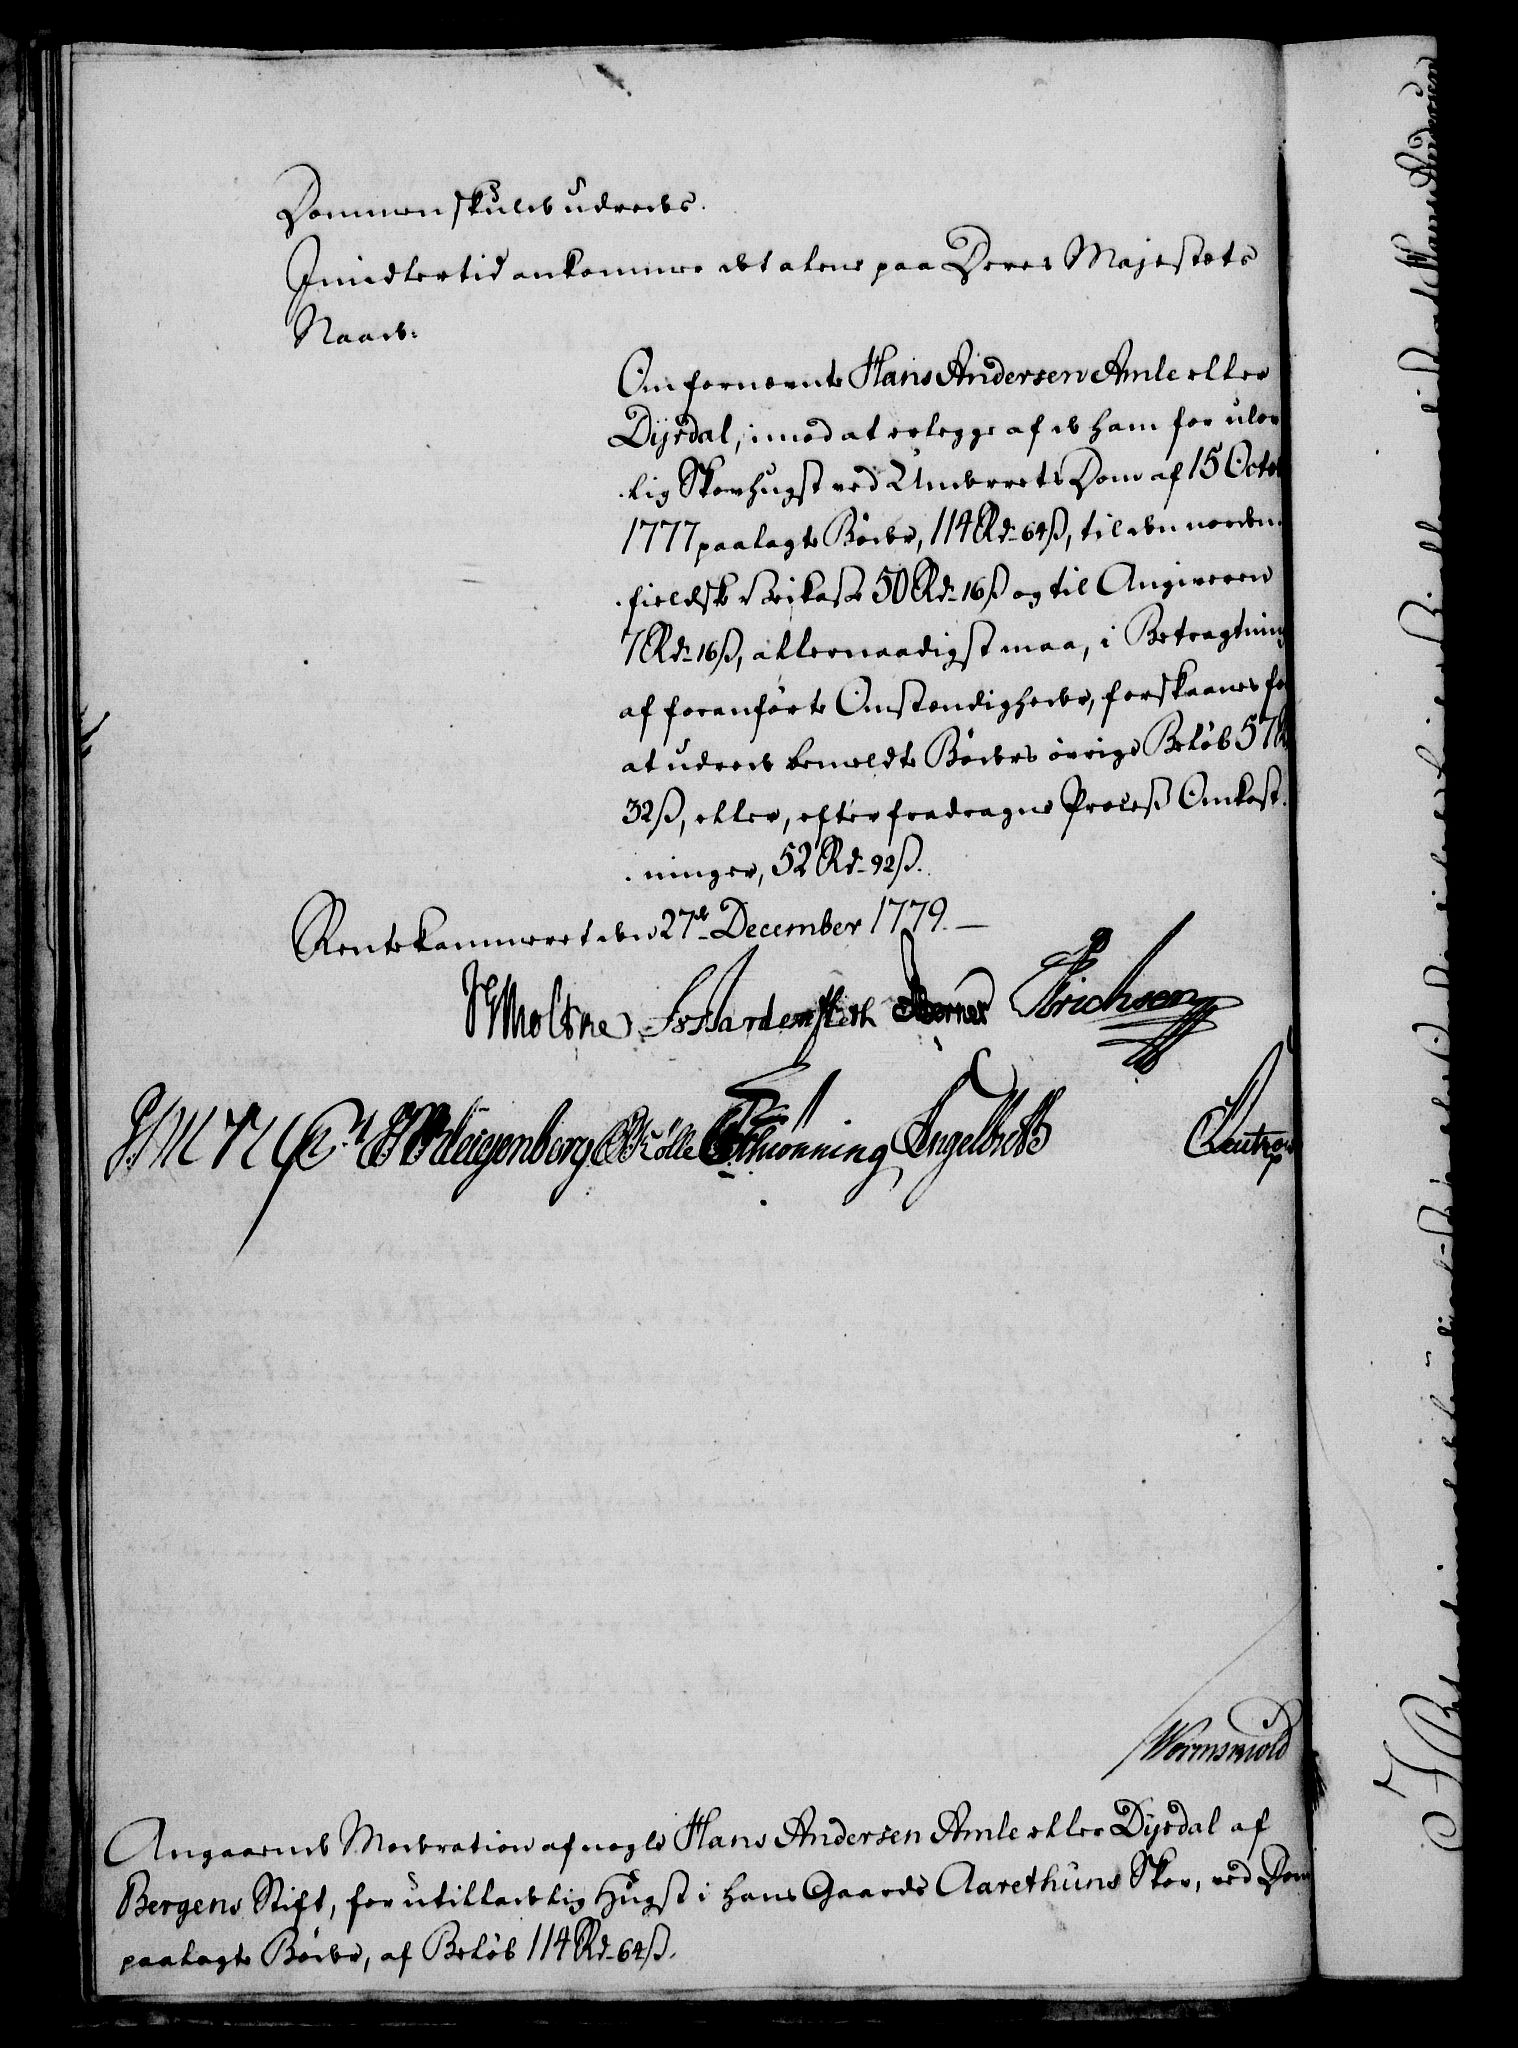 Dommen skulde udredes.
Imidlertid ankommer det alene paa Deres Majestets
Naade:
Om fornevnte Hans Andersen Amle eller
Dyrdal, imod at erlegge af de ham for ulov
lig Skovhugst ved Underrets Dom af 15 Octob
1777 paalagte Bøder, 114 Rd. 64 ß, til den norden-
fieldske Veikasse 50 Rd. 16 ß og til Angiveren
7 Rd. 16 ß, allernaadigst maa, i Betragtning
af foranførte Omstændigheder, forskaanes fo
at udrede bemeldte Bøders øvrige Beløb 57 R
32 ß, eller, efter fradragne Proceß Omkost-
ninger, 52 Rd. 92 ß.
Rentekammeret den 27de December 1779.
JGMoltke Hardenffleth Berner Erichsen
Schiønning Engelbreth
Wormskiold
Angaaende Moderation af nogle Hans Andersen Amle eller Dyrdal af
Bergens Stift, for utilladelig Hugst i hans Gaards Aarethuns Skov, ved Dom
paalagte Bøder, af Beløb 114 Rd. 64 ß.